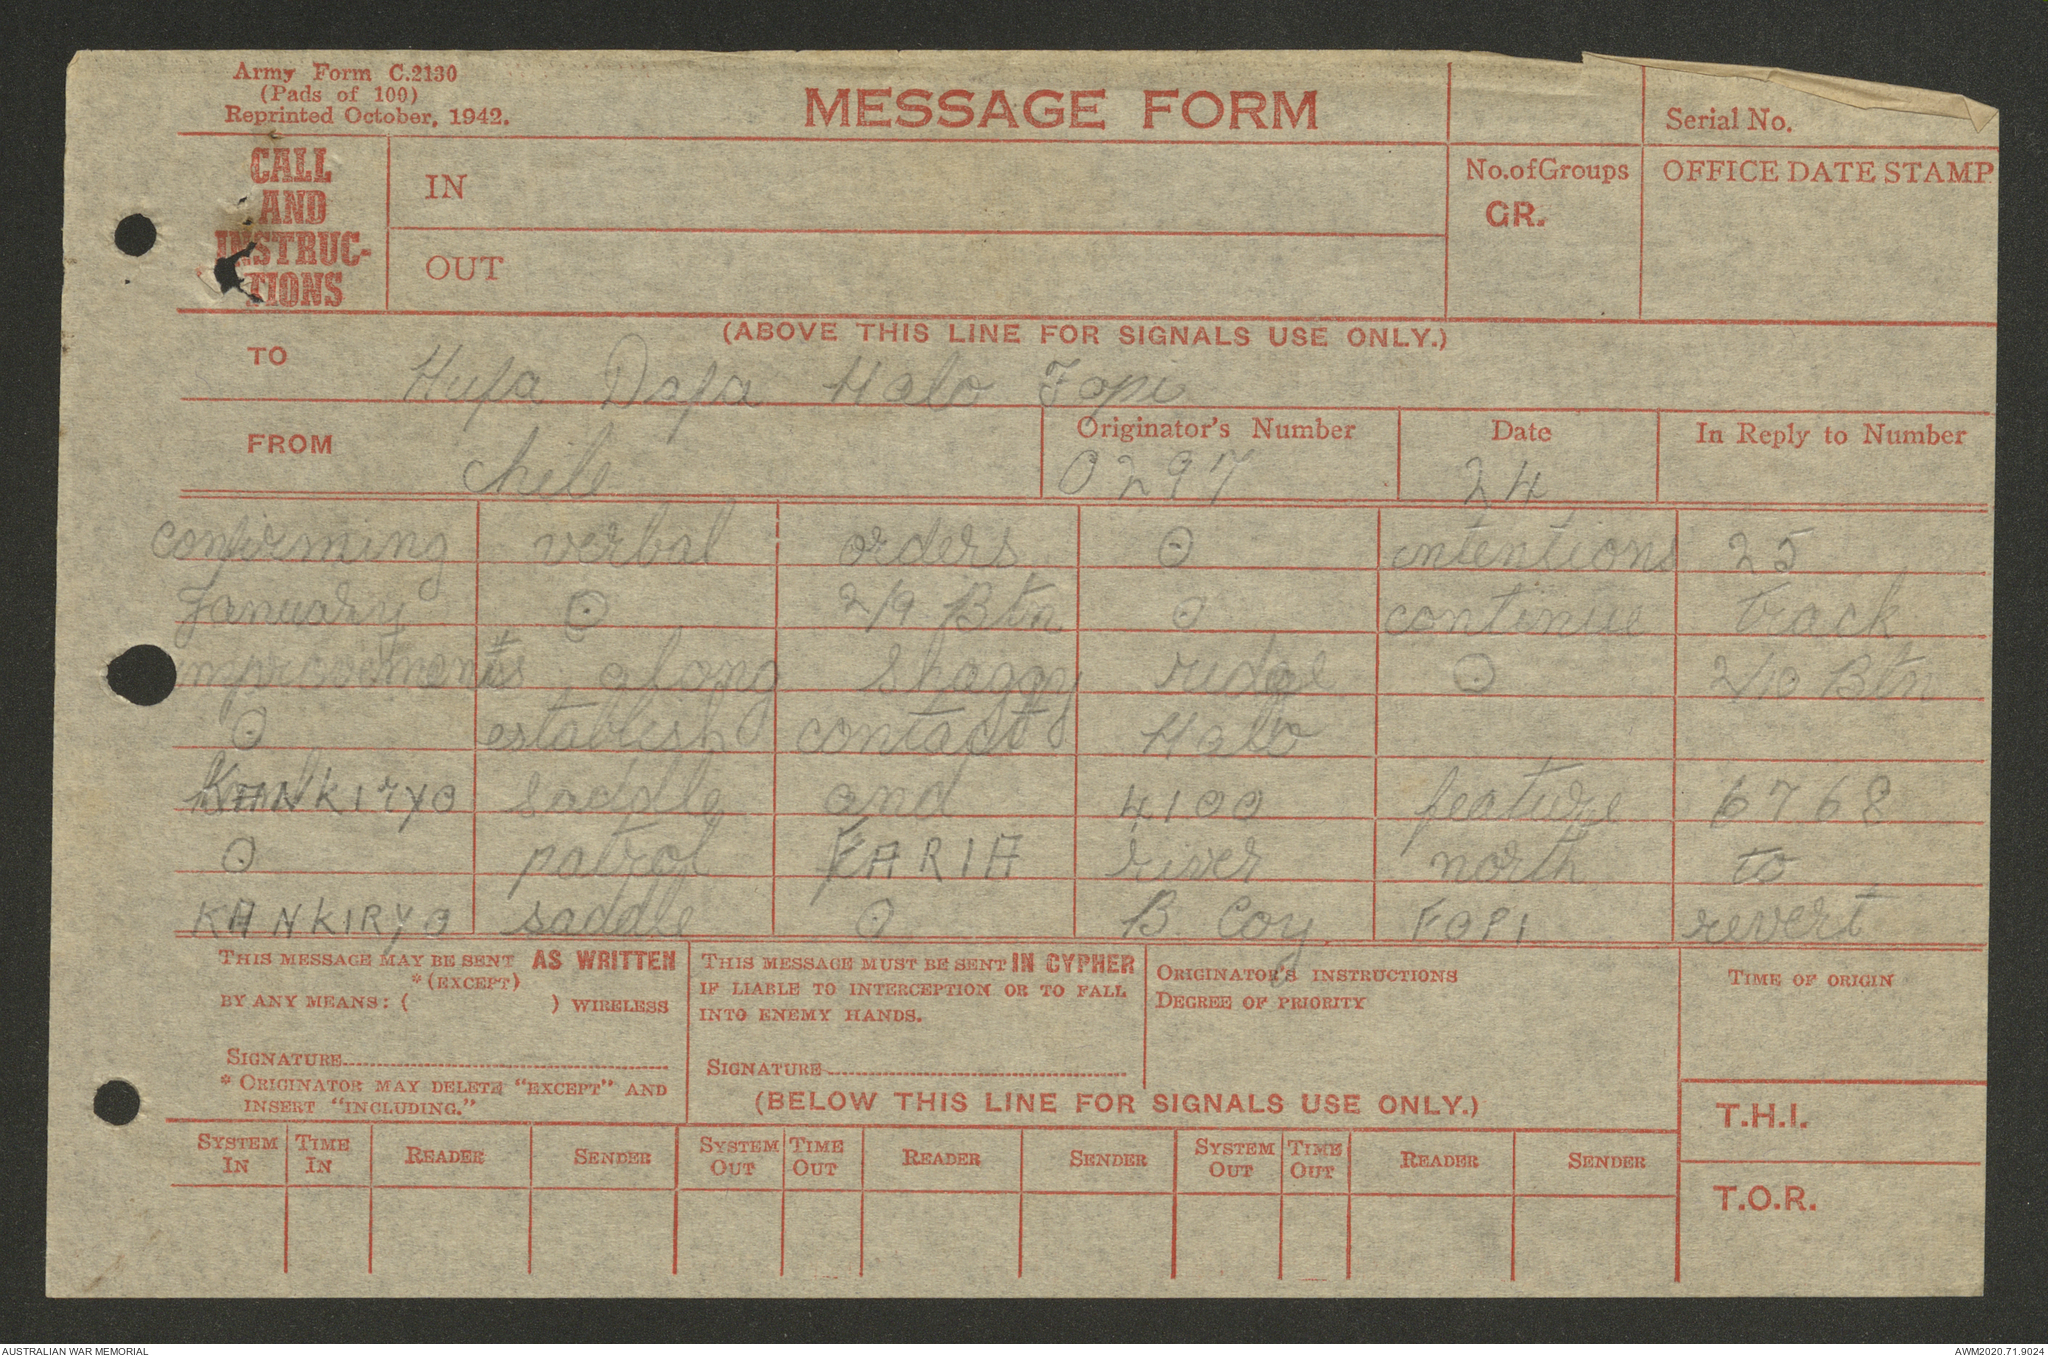 Army Form C.2130
(Pads of 100)
Reprinted October, 1942.
MESSAGE FORM
Serial No.
CALL AND INSTRUC-TIONS
IN
OUT
No. of Groups
GR.
OFFICE DATE STAMP
(ABOVE THIS LINE FOR SIGNALS USE ONLY.)
TO Hufa Dafa Halo Fopi
FROM Chile
Originator's Number 0297
Date 24
In Reply to Number
confirming verbal orders ⊙ intentions 25
January ⊙ 2/9 Btn ⊙ continue track
improvements along Shaggy ridge ⊙ 2/10 Btn
⊙ establish contact Halo
KANKIRYO saddle and 4100 feature 6768
⊙ patrol FARIA river north to
KANKIRYO saddle ⊙ B Coy FOPI revert
THIS MESSAGE MAY BE SENT AS WRITTEN
*(EXCEPT)
BY ANY MEANS: ( ) WIRELESS
SIGNATURE
* ORIGINATOR MAY DELETE "EXCEPT" AND
INSERT "INCLUDING."
THIS MESSAGE MUST BE SENT IN CYPHER
IF LIABLE TO INTERCEPTION OR TO FALL
INTO ENEMY HANDS.
SIGNATURE
ORIGINATOR'S INSTRUCTIONS
DEGREE OF PRIORITY
TIME OF ORIGIN
(BELOW THIS LINE FOR SIGNALS USE ONLY.)
T.H.I.
T.O.R.
SYSTEM IN TIME IN READER SENDER SYSTEM OUT TIME OUT READER SENDER SYSTEM OUT TIME OUT READER SENDER
AUSTRALIAN WAR MEMORIAL
AWM2020.71.9024